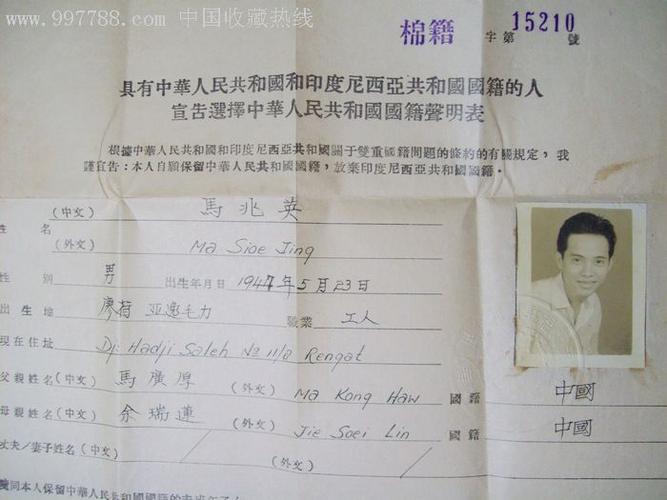 www.997788.com 中国收藏热线
棉籍 字第 15210 號
具有中華人民共和國和印度尼西亞共和國國籍的人
宣告選擇中華人民共和國國籍聲明表
根據中華人民共和國和印度尼西亞共和國關于雙重國籍問題的條約的有關規定，我
謹宣告：本人自願保留中華人民共和國國籍，放棄印度尼西亞共和國國籍。
(中文) 馬兆英
姓名
(外文) Ma Sioe Jing
性別 男 出生年月日 1947年5月23日
出生地 廖省 亚逸毛力 職業 工人
現在住址 Dj. Hadji Saleh No 11/B Rengat
父親姓名(中文) 馬廣厚 (外文) Ma Kong Haw 國籍 中國
母親姓名(中文) 余瑞蓮 (外文) Jie Soei Lin 國籍 中國
丈夫/妻子姓名(中文) / (外文) /
同本人保留中華人民共和國國籍的未成年子